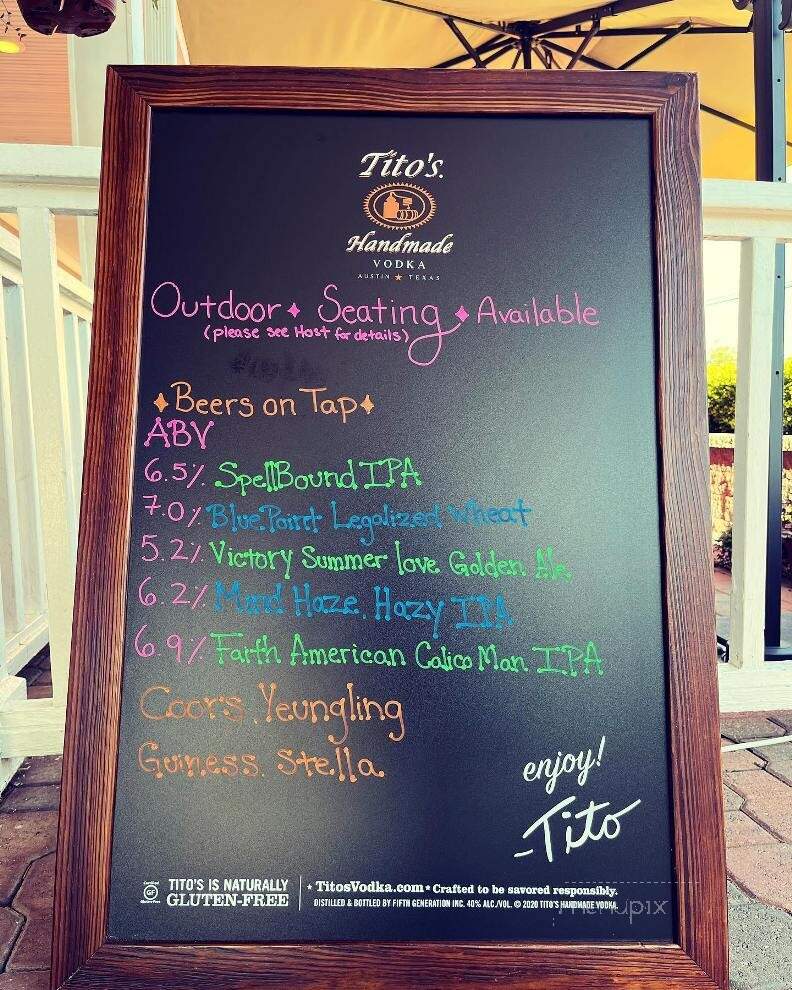 Tito's.
Handmade
VODKA
AUSTIN ★ TEXAS
Outdoor ✦ Seating ✦ Available
(please see Host for details)
✦Beers on Tap✦
ABV
6.5% SpellBound IPA
7.0% Blue Point Legalized wheat
5.2% Victory Summer love Golden Ale
6.2% Mind Haze. Hazy IPA
6.9% Farth American Calico Man IPA
Coors. Yeungling
Guiness. Stella
enjoy!
-Tito
Certified GF Gluten-Free
TITO'S IS NATURALLY
GLUTEN-FREE
★ TitosVodka.com ★ Crafted to be savored responsibly.
DISTILLED & BOTTLED BY FIFTH GENERATION INC. 40% ALC./VOL. © 2020 TITO'S HANDMADE VODKA.
menupix